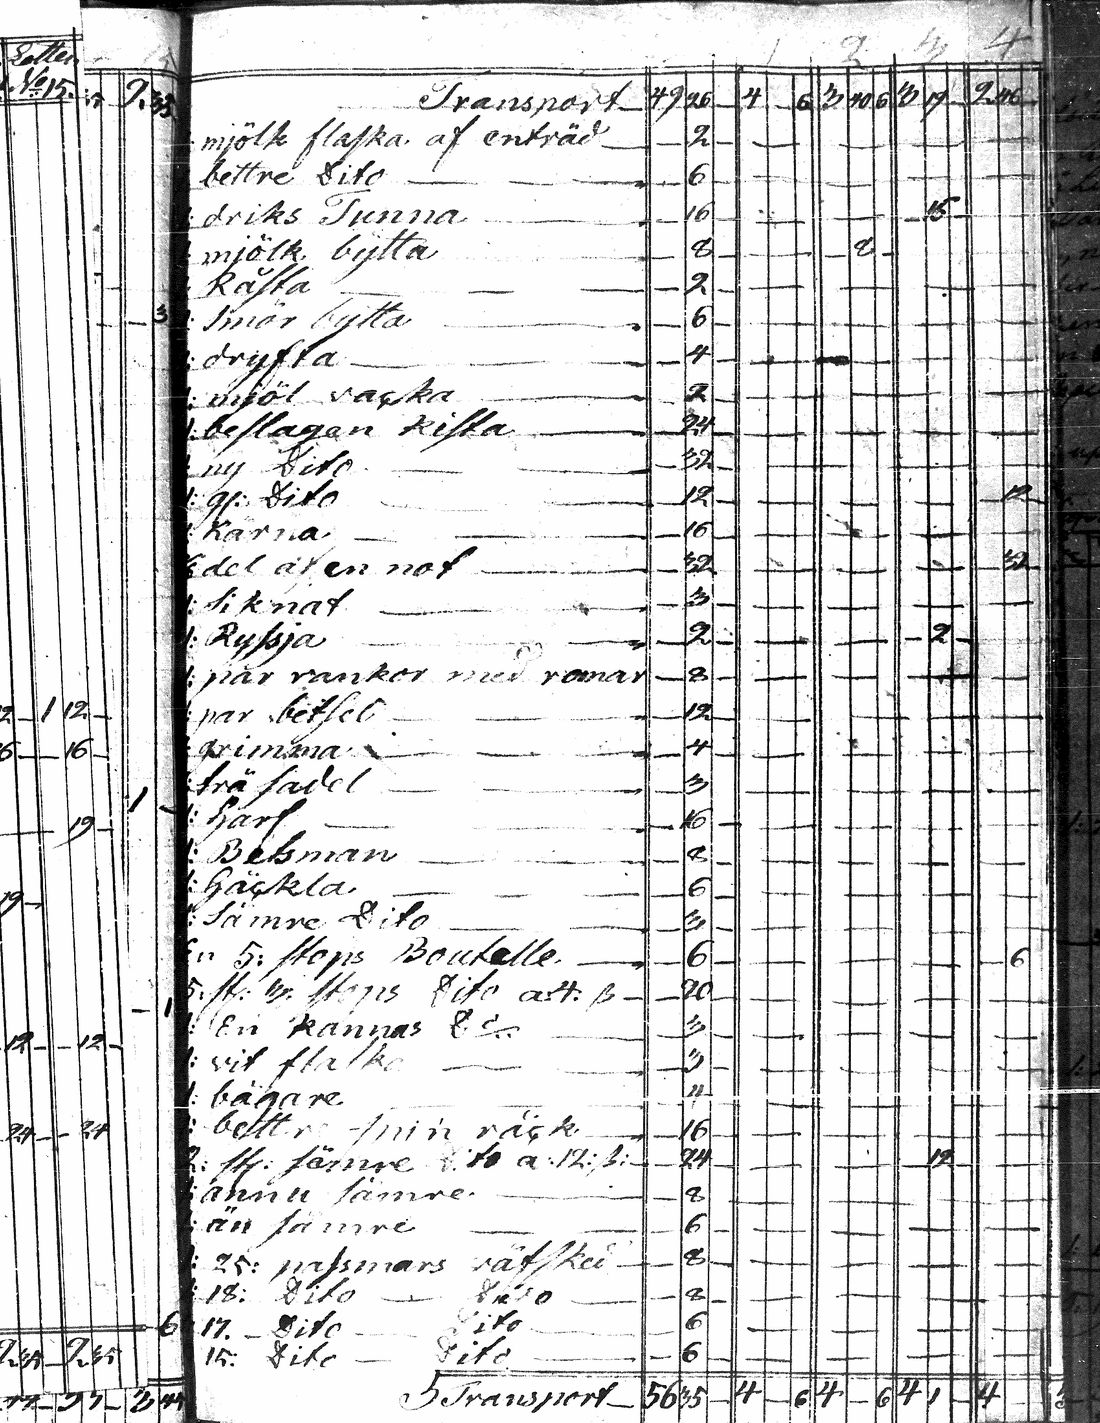 Zetten
No 15.
9.35
1 2 3 4
Transport 49 26 4 6 3 40 6 3 19 2 46
1: mjölk flaska af enträd 2
bettre Dito 6
driks Tunna 16 15
mjölk bytta 8 8
Råsta 2
Smör bytta 6
dryfta 4
mjöl vacka 2
1: beslagen Kista 24
ny Dito 32
1: gl: Dito 12 12
Kärna 16
del af en not 32 32
1: siknat 3
1: Ryssja 2 2
1: par vankor med romar 8
1: par betsel 12
grimma 4
trä sadel 3
1: Harf 16
1: Betsman 8
1: Häckla 6
sämre Dito 3
En 5: stops Boutelle 6 6
5: st: 3: stops Dito a 4: ß 20
1: En Kannas Do 3
1: vit flaska 3
1: bägare 4
bettre spin räck 16
2: st: sämre Dito a: 12: ß: 24 12
1: annu sämre 8
än sämre 6
1: 25: passmars väfsked 8
18: Dito Dito 8
17. Dito Dito 6
15: Dito Dito 6
Transport 56 35 4 6 4 6 4 1 4